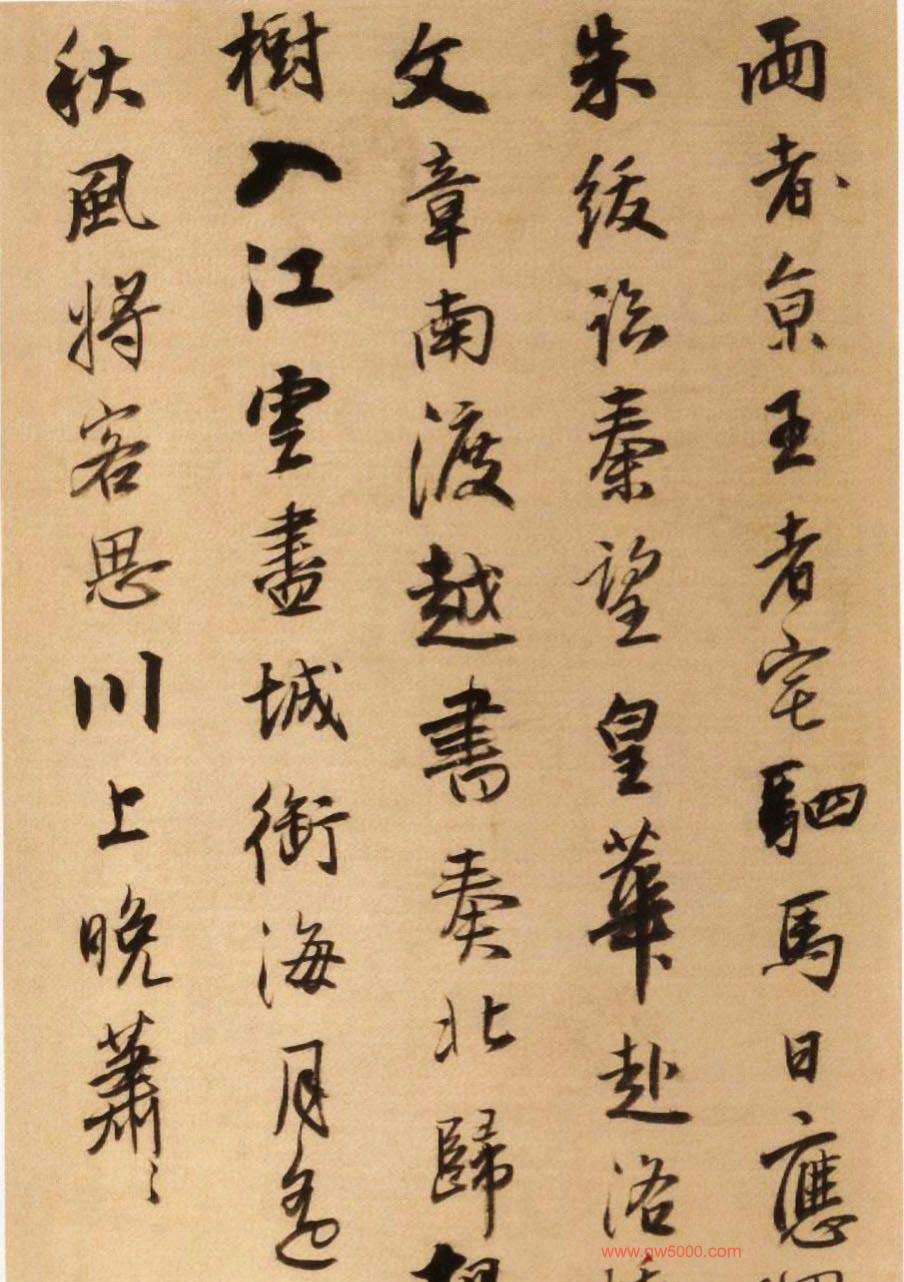 兩都京王者宅駟馬日應
朱紱詣秦望皇華赴洛
文章南渡越書奏北歸
樹入江雲盡城銜海月遙
秋風將客思川上晚蕭〻
www.gw5000.com